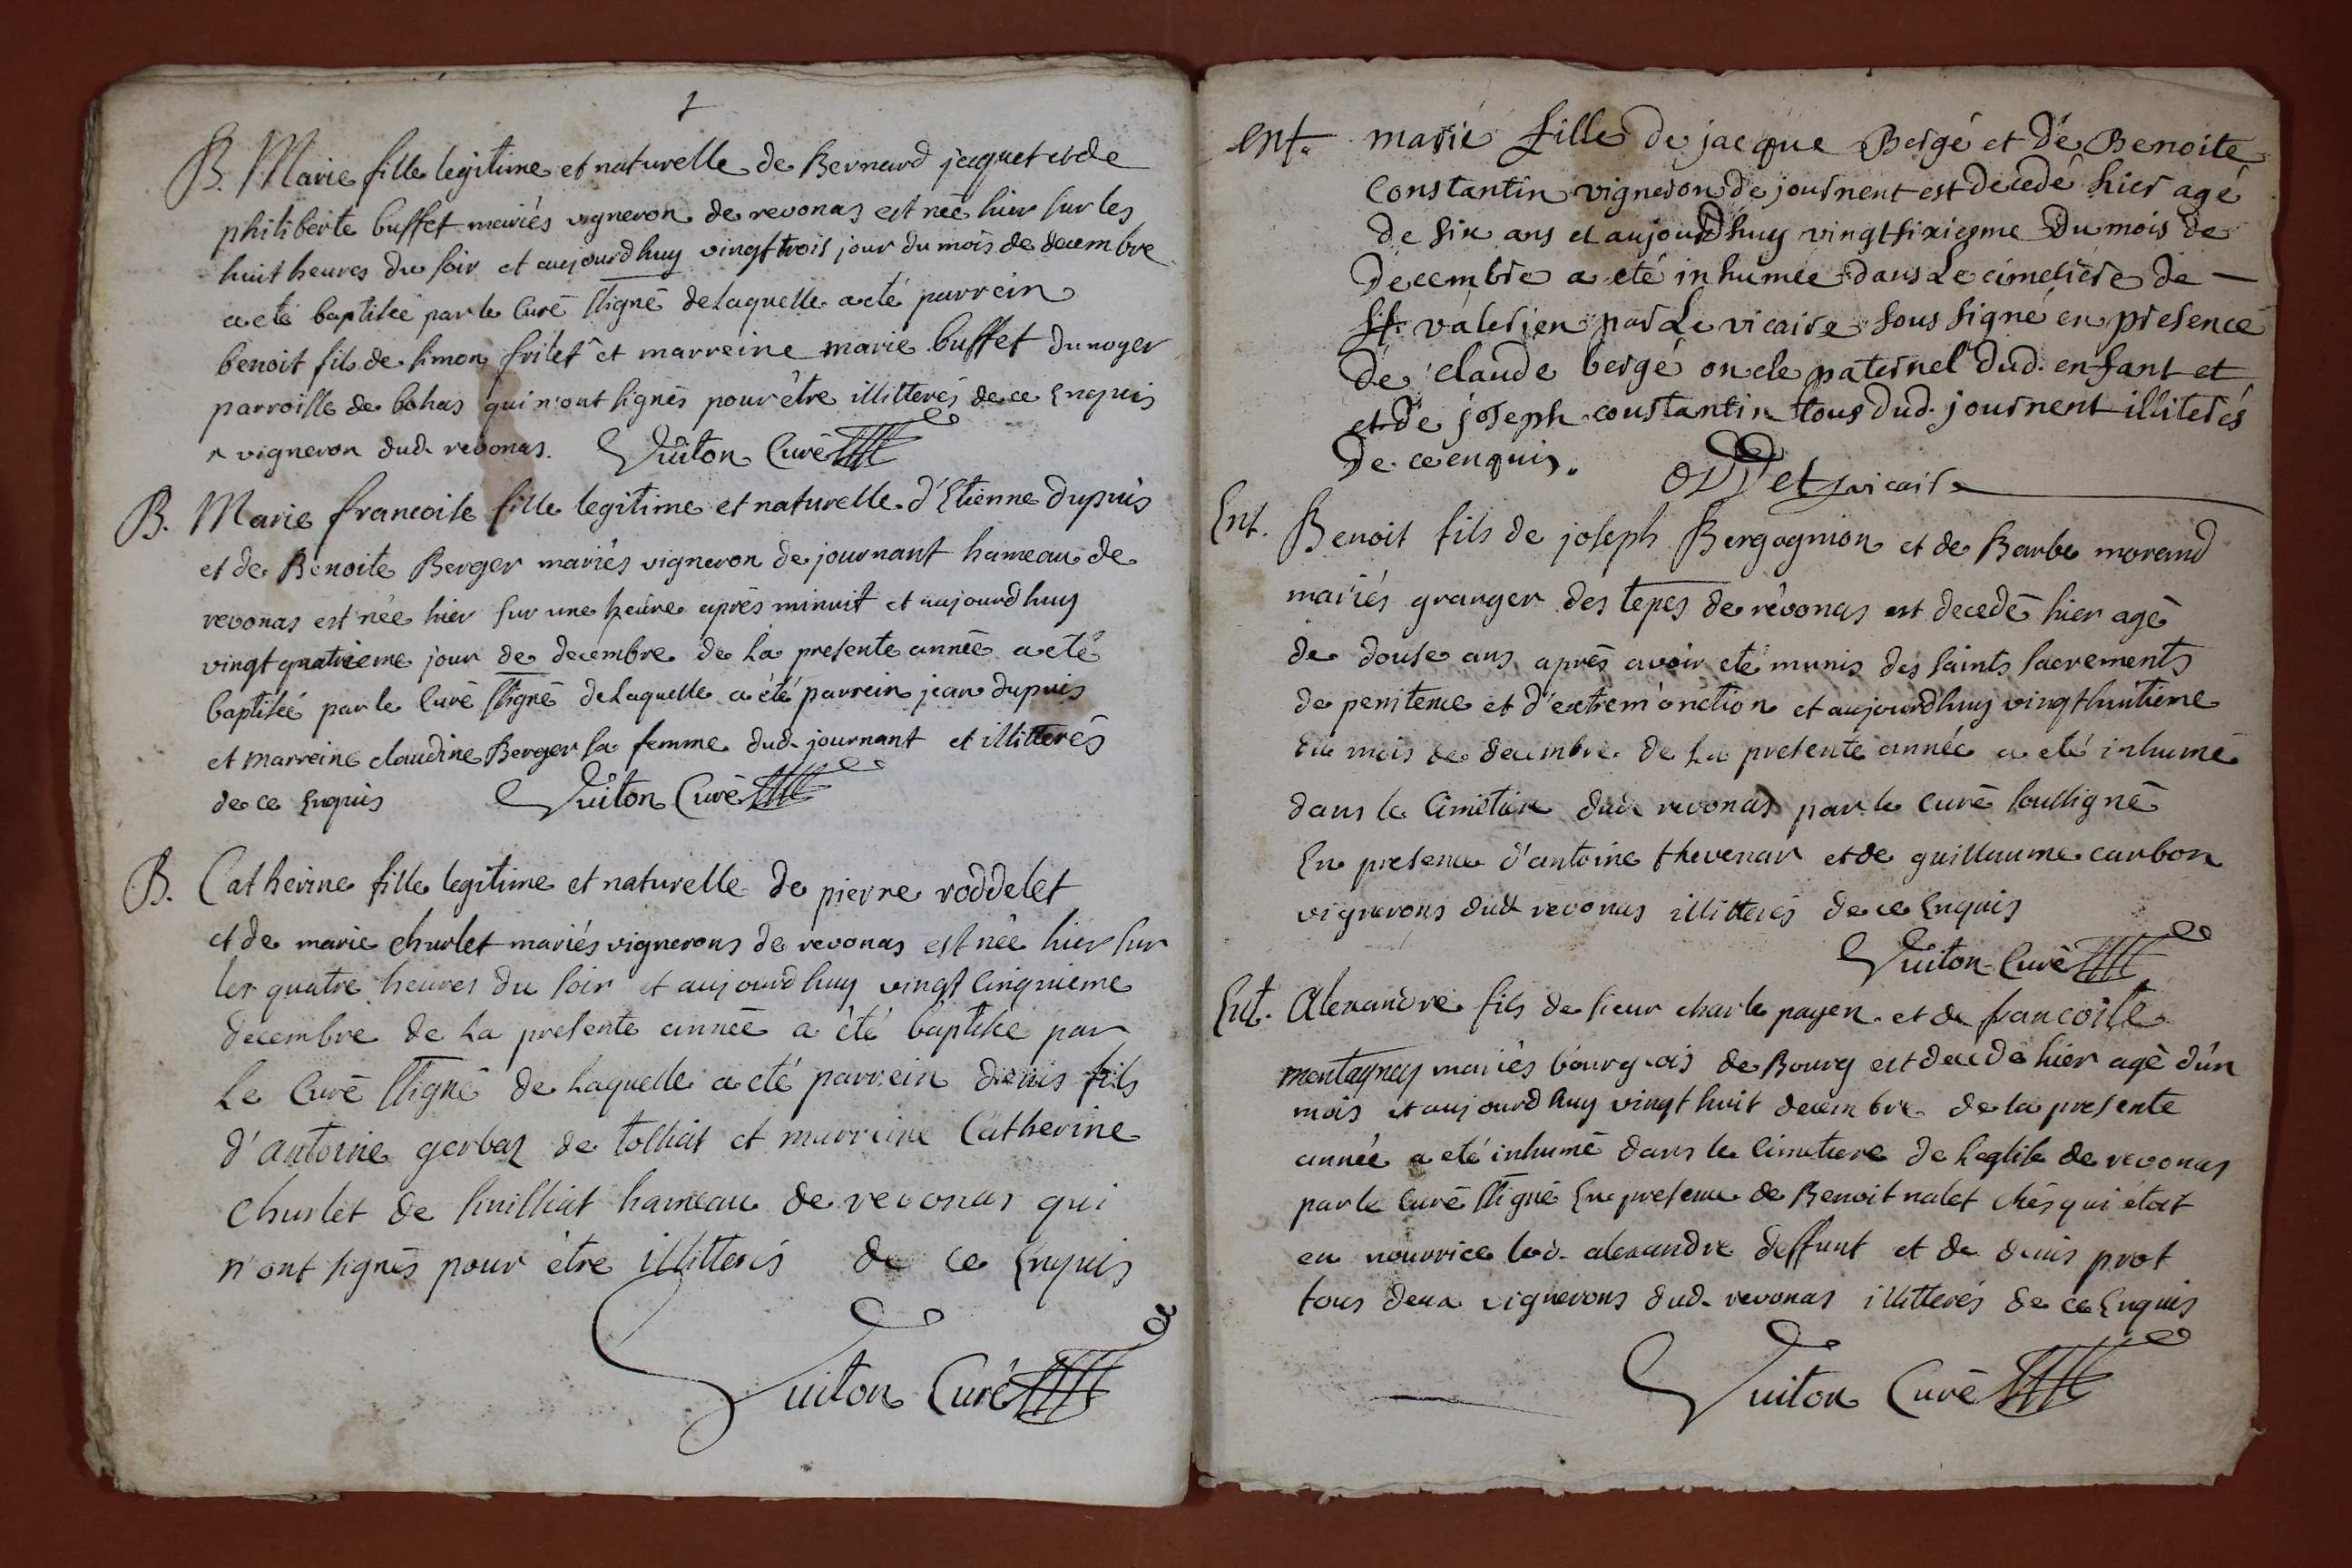 B. Marie fille legitime et naturelle de Bernard jaquet et de
philiberte buffet mariés vigneron de revonas est née hier sur les
huit heures du soir et aujourdhuy vingt trois jour du mois de decembre
a eté baptisée par le Curé ssigné de laquelle a eté parrein
benoit fils de simon frilet ^ et marreine marie buffet du noyer
parroisse de bohas qui n'ont signés pour être illitterés de ce Enquis
^ vigneron dud. revonas. Vuiton Curé
B. Marie francoise fille legitime et naturelle d'Etienne Dupuis
et de Benoite Berger mariés vigneron de journant hameau de
revonas est née hier sur une heure après minuit et aujourdhuy
vingt quatrieme jour de decembre de la presente année a eté
baptisée par le Curé ssigné de laquelle a été parrein jean dupuis
et marreine claudine Berger sa femme dud. journant et illitterés
de ce Enquis Vuiton Curé
B. Catherine fille legitime et naturelle de pierre roddelet
et de marie churlet mariés vignerons de revonas est née hier sur
les quatre heures du soir et aujourdhuy vingt cinquieme
decembre de la presente année a été baptisée par
Le Curé ssigné de laquelle a eté parrein denis fils
d'antoine gerbaz de tossiat et marreine Catherine
Churlet de senissiat hameau de revonas qui
n'ont signés pour être illitterés de ce Enquis
Vuiton Curé
ent. marie fille de jacque Bergé et de Benoite
Constantin vigneron de journent est decedé hier agé
de six ans et aujourdhuy vingt sixiesme du mois de
decembre a eté inhumée dans Le cimetiere de
St. valerien par Le vicaire sous signé en presence
de claude bergé oncle paternel dud. enfant et
et de joseph constantin tous dud. journent illiterés
de ce enquis. Oddet vicaire
Ent. Benoit fils de joseph Bergognion et de Barbe morand
mariés granger des tepes de revonas est decedé hier agé
de douse ans après avoir eté munis des saints sacrements
de penitence et d'extrem'onction et aujourdhuy vingt huitieme
du mois de decembre de la presente année a eté inhumé
dans le Cimetiere dud. revonas par le curé soussigné
En presence d'antoine thevenar et de guillaume carbon
vignerons dud. revonas illitterés de ce Enquis
Vuiton Curé
Ent. Alexandre fils de sieur charle payen et de francoise
montagnay mariés bourgeois de Bourg est decedé hier agé d'un
mois et aujourdhuy vingt huit decembre de la presente
année a eté inhumé dans le Cimetiere de l'eglise de revonas
par le Curé ssigné En presence de Benoit nalet chés qui étoit
en nourrice led. alexandre deffunt et de denis prot
tous deux vignerons dud. revonas illitterés de ce Enquis
Vuiton Curé